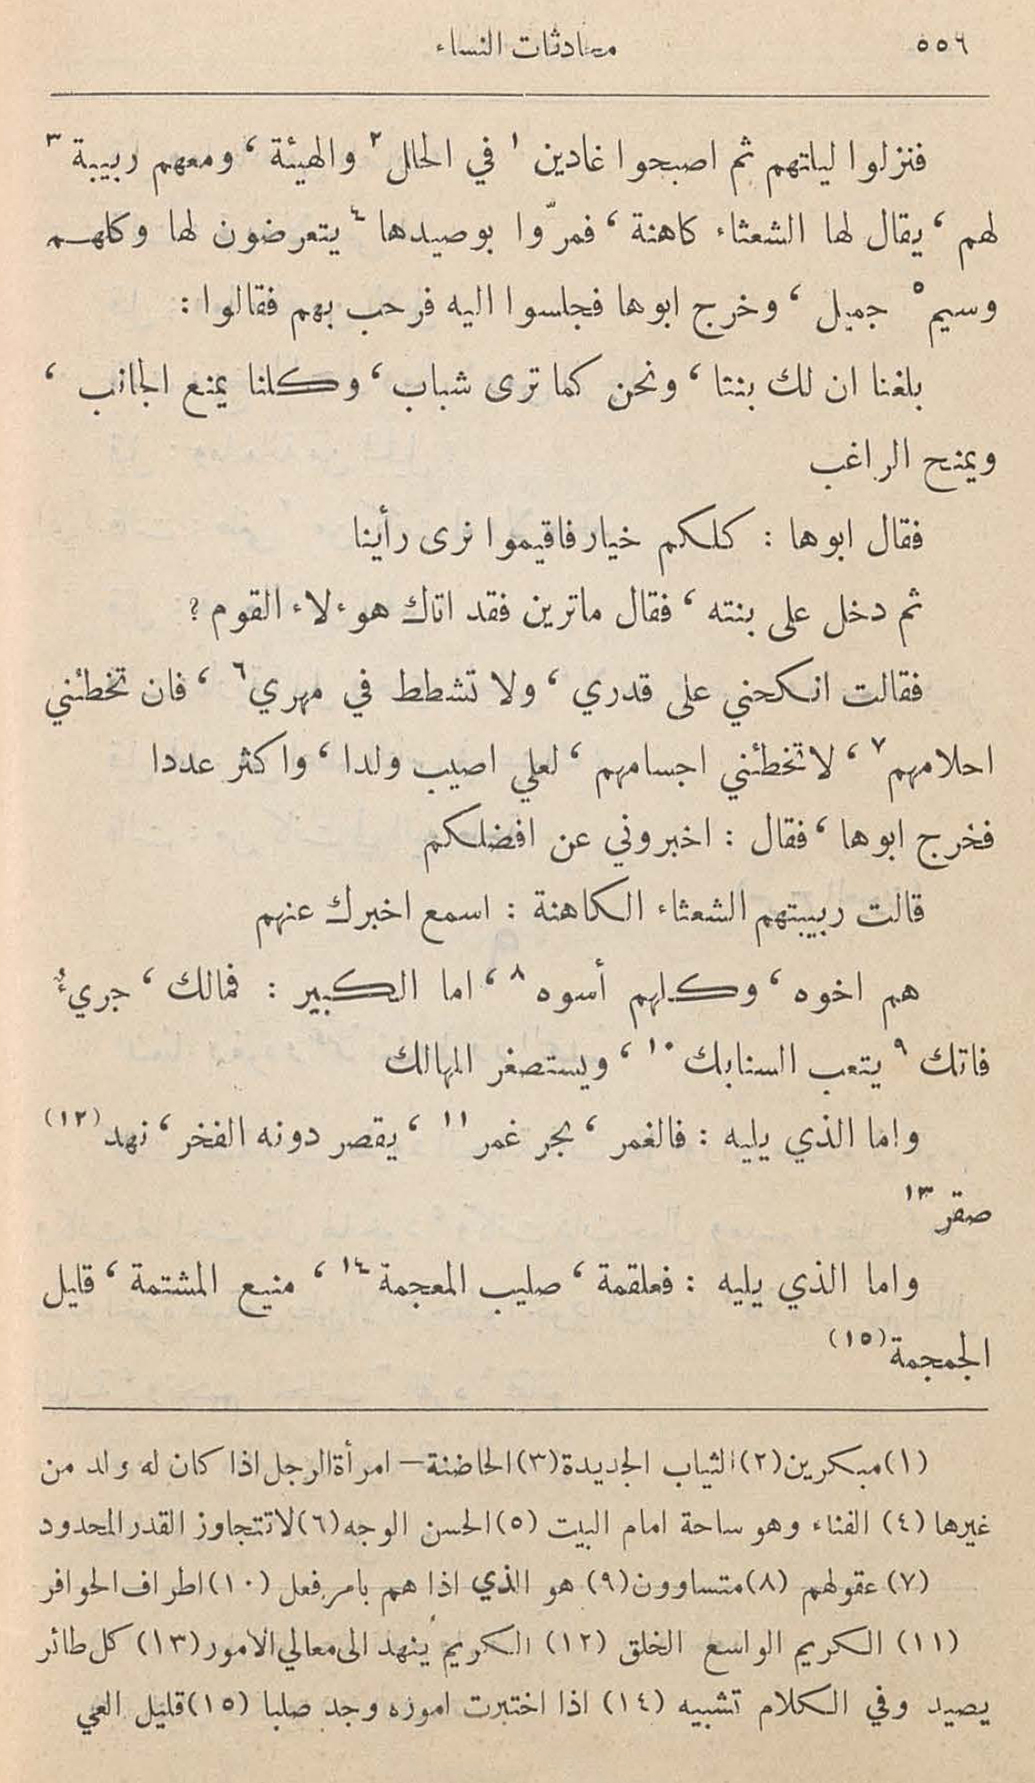 ٥٥٦ محادثات النساء
فنزلوا ليلتهم ثم اصبحوا غادين ١ في الحلل ٢ والهيئة ، ومعهم ربيبة ٣
لهم ، يقال لها الشعثاء كاهنة ، فمرّوا بوصيدها ٤ يتعرضون لها وكلهم
وسيم ٥ جميل ، وخرج ابوها فجلسوا اليه فرحب بهم فقالوا :
بلغنا ان لك بنتا ، ونحن كما ترى شباب ، وكلنا يمنع الجانب ،
ويمنح الراغب
فقال ابوها : كلكم خيار فاقيموا نرى رأينا
ثم دخل على بنته ، فقال ماترين فقد اتاك هوءلاء القوم ؟
فقالت انكحني على قدري ، ولا تشطط في مهري ٦ ، فان تخطئني
احلامهم ٧ ، لاتخطئني اجسامهم ، لعلي اصيب ولدا ، واكثر عددا
فخرج ابوها ، فقال : اخبروني عن افضلكم
قالت ربيبتهم الشعثاء الكاهنة : اسمع اخبرك عنهم
هم اخوه ، وكلهم أسوه ٨ ، اما الكبير : فمالك ، جريءٌ
فاتك ٩ يتعب السنابك ١٠ ، ويستصغر المهالك
واما الذي يليه : فالغمر ، بحر غمر ١١ ، يقصر دونه الفخر ، نهد (١٢)
صقر ١٣
واما الذي يليه : فعلقمة ، صليب المعجمة ١٤ ، منيع المشتمة ، قليل
الجمجمة (١٥)
(١) مبكرين (٢) الثياب الجديدة (٣) الحاضنة — امرأة الرجل اذا كان له ولد من
غيرها (٤) الفناء وهو ساحة امام البيت (٥) الحسن الوجه (٦) لاتتجاوز القدر المحدود
(٧) عقولهم (٨) متساوون (٩) هو الذي اذا هم بامر فعل (١٠) اطراف الحوافر
(١١) الكريم الواسع الخلق (١٢) الكريم ينهد الى معالي الامور (١٣) كل طائر
يصيد وفي الكلام تشبيه (١٤) اذا اختبرت اموره وجد صلبا (١٥) قليل العي